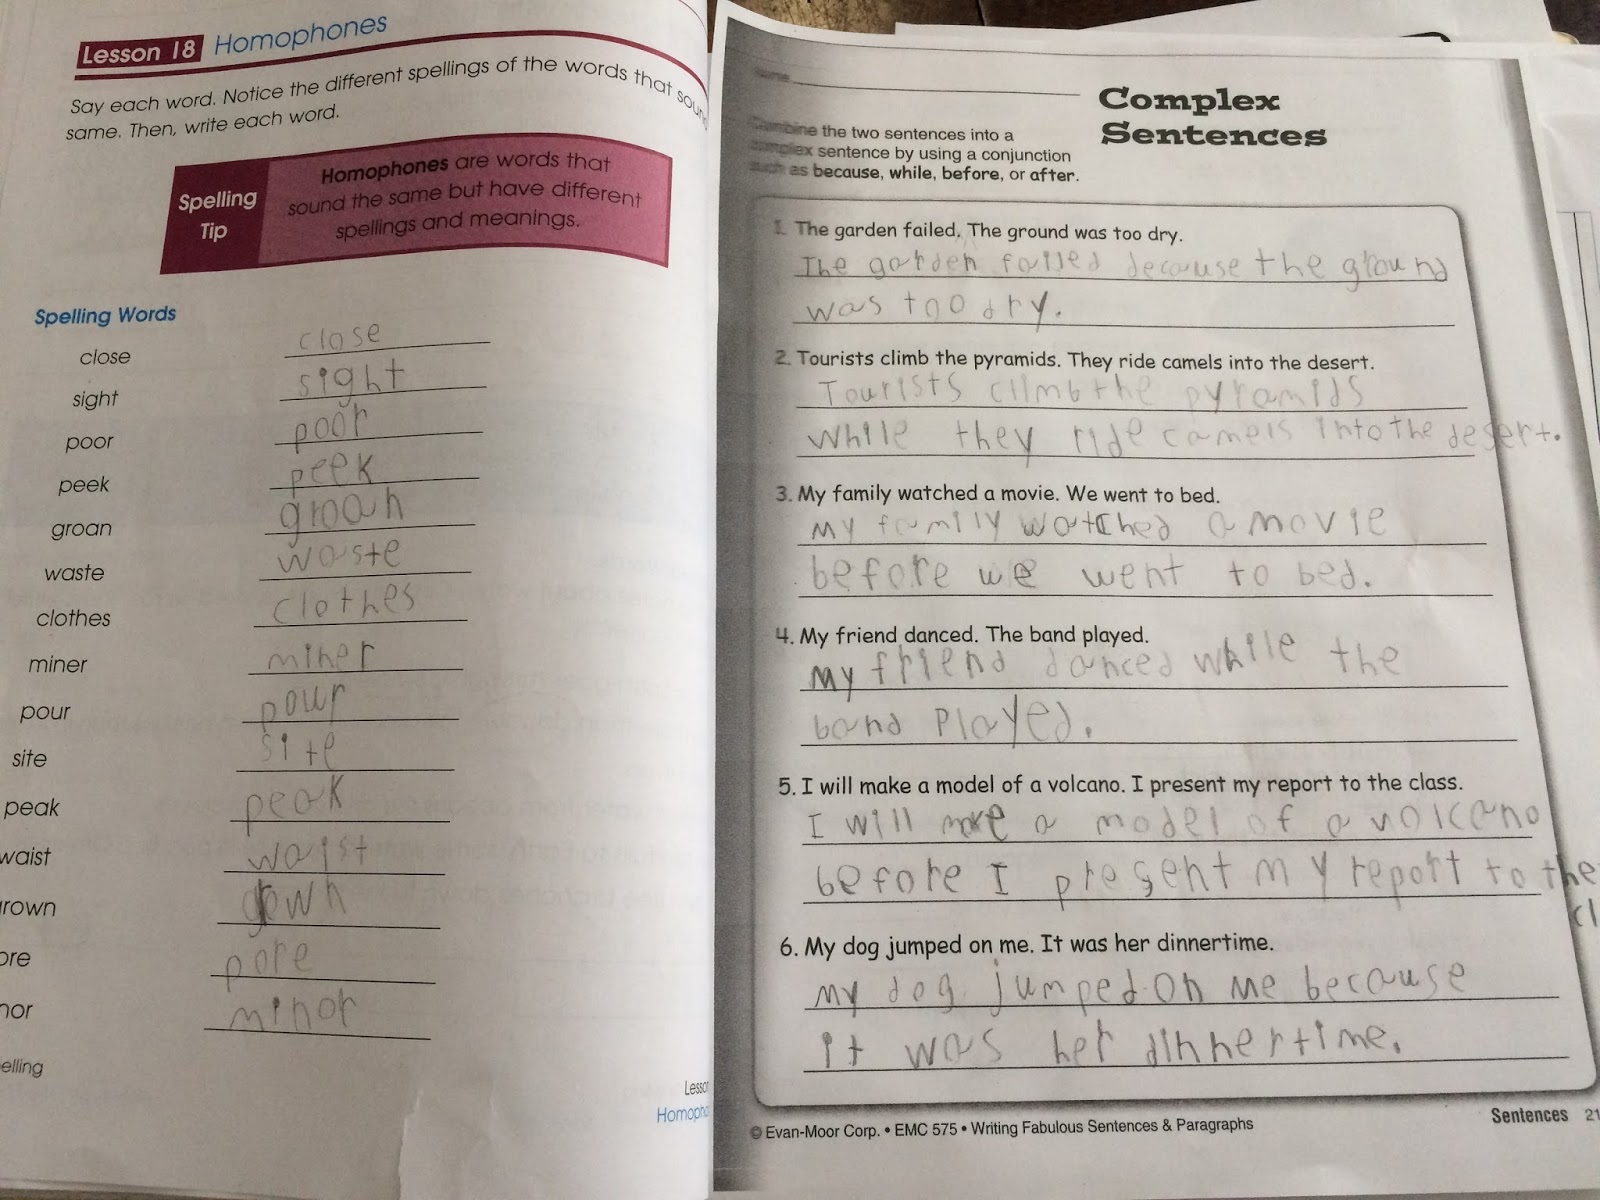 Lesson 18 Homophones
Say each word. Notice the different spellings of the words that soun
same. Then, write each word.
Spelling
Tip
Homophones are words that
sound the same but have different
spellings and meanings.
Spelling Words
close close
sight sight
poor poor
peek peek
groan groan
waste waste
clothes clothes
miner miner
pour pour
site site
peak peak
waist waist
rown grown
ore pore
nor minor
elling
Lesso
Homopho
Name
Complex
Sentences
Combine the two sentences into a
complex sentence by using a conjunction
such as because, while, before, or after.
1. The garden failed. The ground was too dry.
The garden failed decause the ground
was too dry.
2. Tourists climb the pyramids. They ride camels into the desert.
Tourists climb the pyramids
while they ride camels into the desert.
3. My family watched a movie. We went to bed.
My family watched a movie
before we went to bed.
4. My friend danced. The band played.
My friend danced while the
band played.
5. I will make a model of a volcano. I present my report to the class.
I will make a model of a volcano
before I present my report to the
cl
6. My dog jumped on me. It was her dinnertime.
my dog jumped on me because
it was her dinnertime.
© Evan-Moor Corp. • EMC 575 • Writing Fabulous Sentences & Paragraphs
Sentences 21